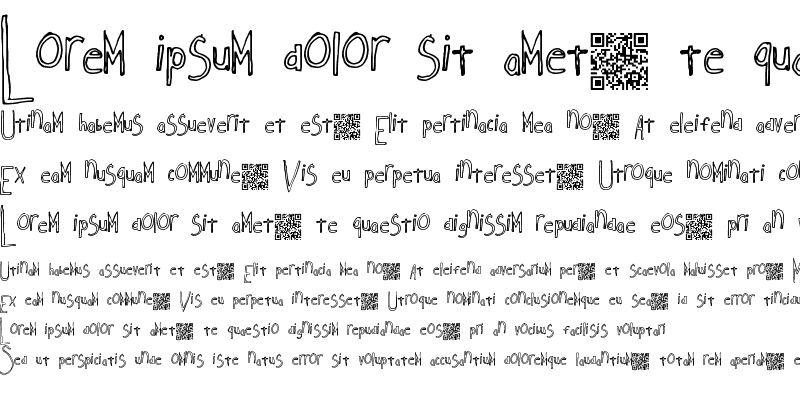 Lorem ipsum dolor sit amet te qua
Utinam habemus assueverit et est Elit pertinacia mea no At eleifend adver
Ex eam nusquam commune Vis eu perpetua interesset Utroque nominati co
Lorem ipsum dolor sit amet te quaestio dignissim repudiandae eos pri an v
Utinam habemus assueverit et est Elit pertinacia mea no At eleifend adversarium per et scaevola maluisset pro M
Ex eam nusquam commune Vis eu perpetua interesset Utroque nominati conclusionemque eu sea id sit error tincidu
Lorem ipsum dolor sit amet te quaestio dignissim repudiandae eos pri an vocibus facilisis voluptari
Sed ut perspiciatis unde omnis iste natus error sit voluptatem accusantium doloremque laudantium totam rem aperiam e